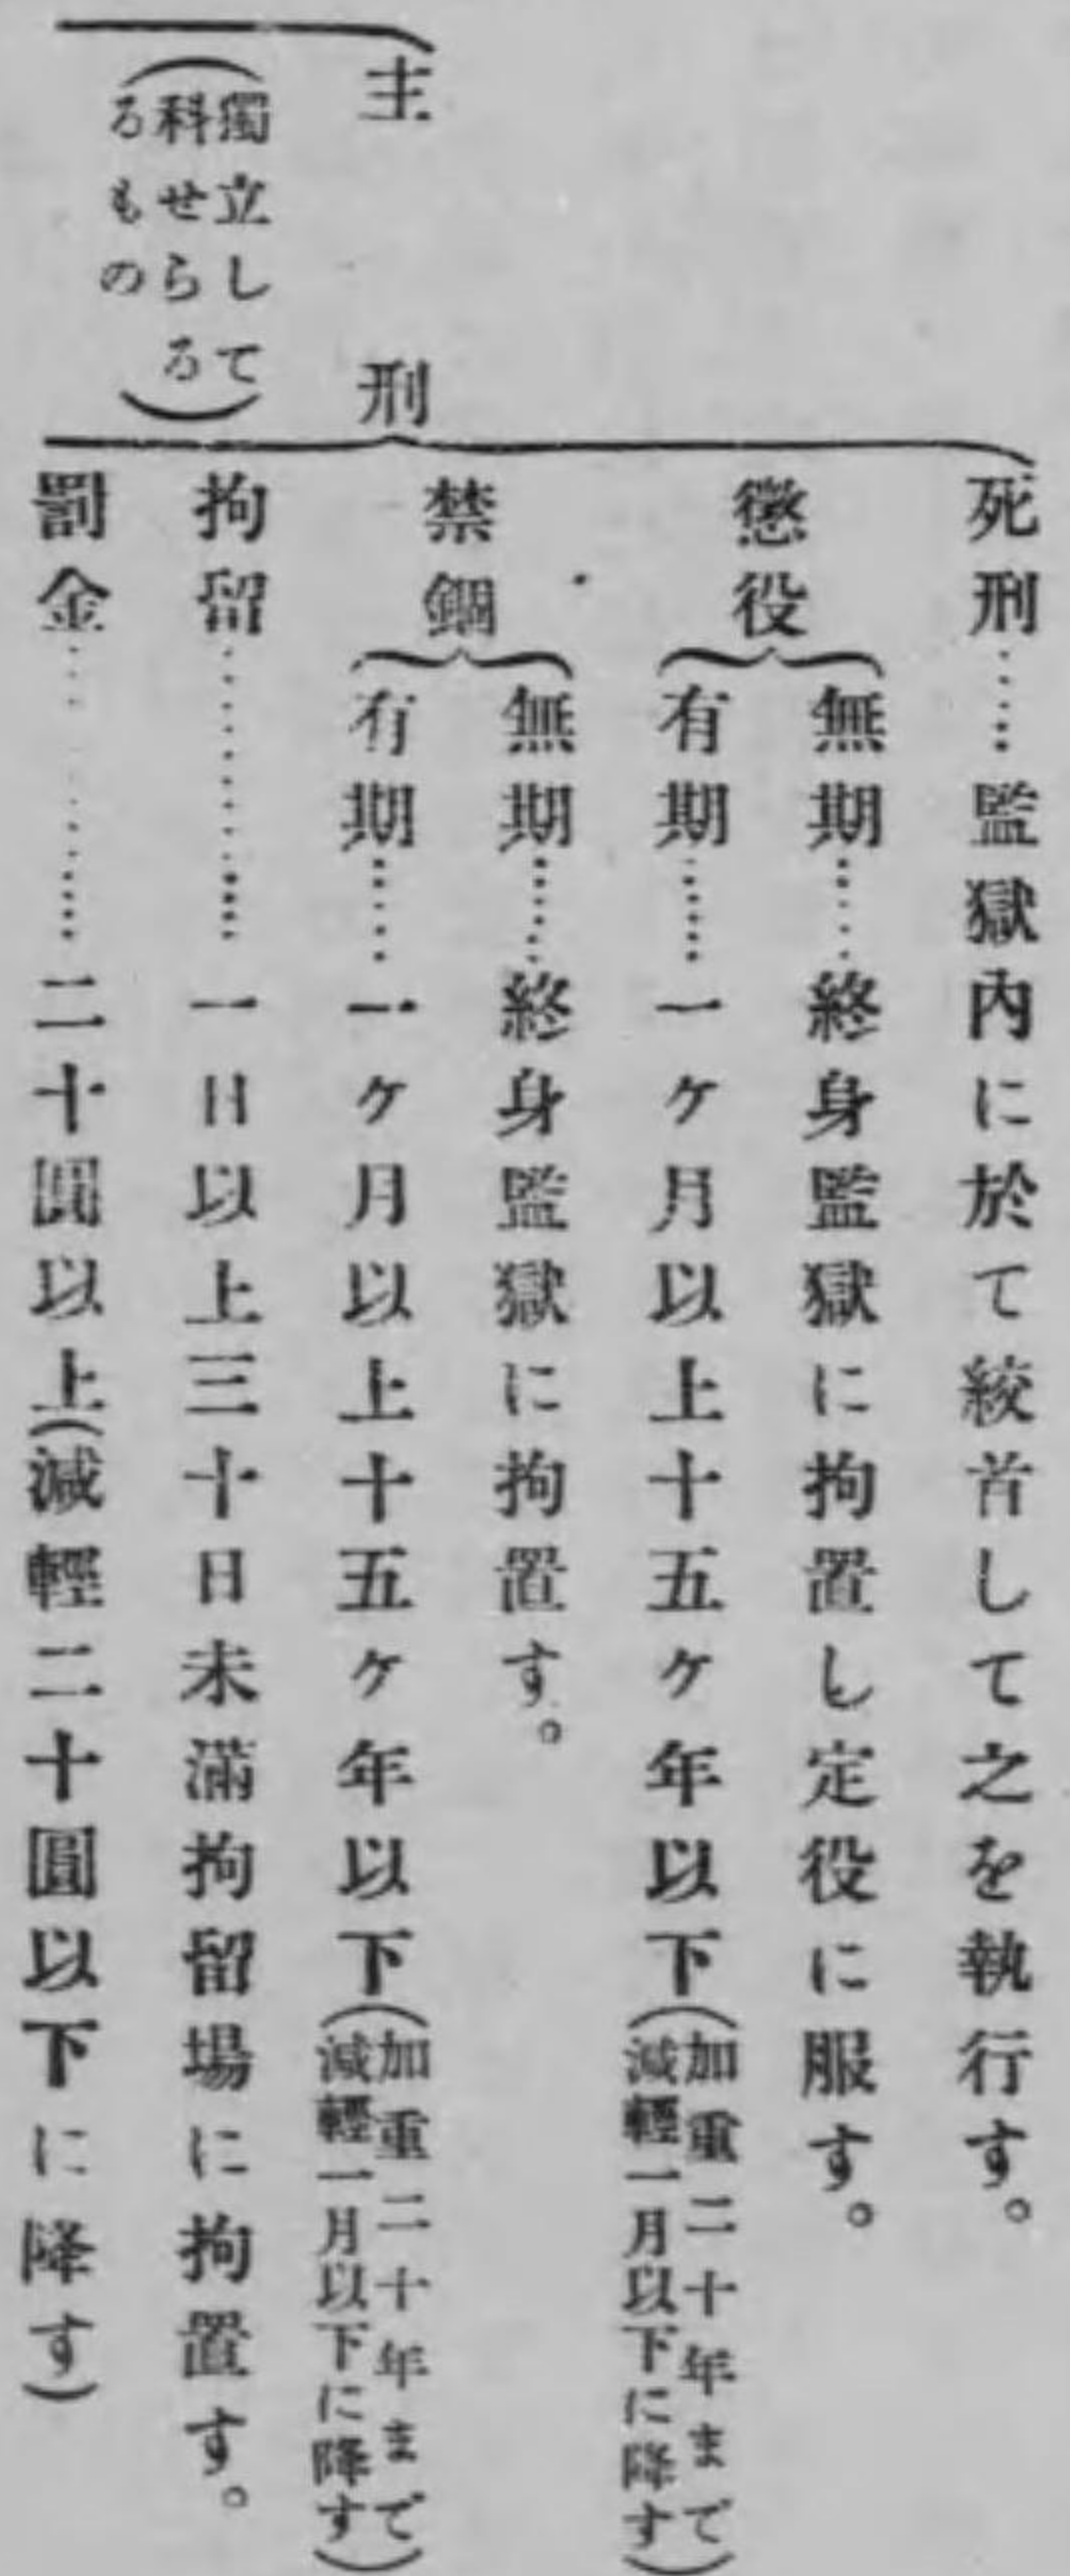 主刑
(獨立して
科せらる
るもの)
死刑……監獄內に於て絞首して之を執行す。
懲役
無期……終身監獄に拘置し定役に服す。
有期……一ケ月以上十五ケ年以下(加重二十年まで
減輕一月以下に降す)
禁錮
無期……終身監獄に拘置す。
有期……一ケ月以上十五ケ年以下(加重二十年まで
減輕一月以下に降す)
拘留…………一日以上三十日未滿拘留場に拘置す。
罰金…………二十圓以上(減輕二十圓以下に降す)